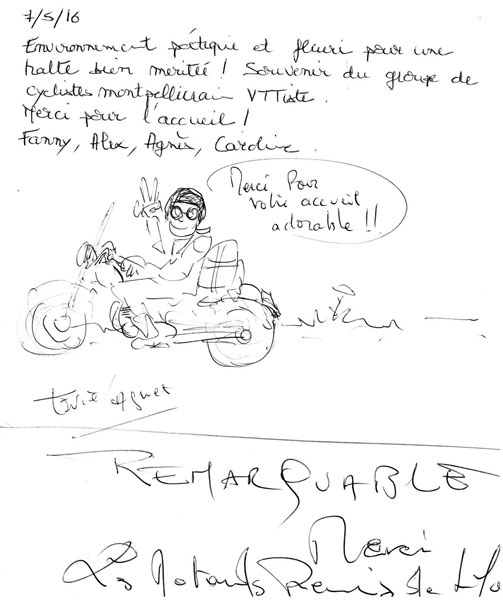 7/5/16
Environnement poétique et fleuri pour une
halte bien méritée ! Souvenir du groupe de
cyclistes montpelliérain VTTiste.
Merci pour l'accueil !
Fanny, Alex, Agnès, Caroline.
Merci Pour
votre accueil
adorable !!
REMARQUABLE
Merci
Les Motards